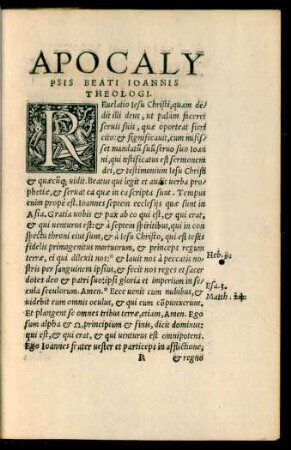 APOCALY
PSIS BEATI IOANNIS
THEOLOGI.
REuelatio Iesu Christi, quam de
dit illi deus, ut palàm faceret
seruis suis, quæ oporteat fieri
citò: & significauit, cum misis
set mandatũ suũ seruo suo Ioan
ni, qui testificatus est sermonem
dei, & testimonium Iesu Christi
& quæcũq; uidit. Beatus qui legit et audit uerba pro
phetiæ, & seruat ea quæ in ea scripta sunt. Tempus
enim propè est. Ioannes septem ecclesijs quæ sunt in
Asia. Gratia uobis & pax ab eo qui est, & qui erat,
& qui uenturus est: & à septem spiritibus, qui in con
spectu throni eius sunt, & à Iesu Christo, qui est testis
fidelis primogenitus mortuorum, & princeps regum
terræ, ei qui dilexit nos: & lauit nos à peccatis no
stris per sanguinem ipsius, & fecit nos reges et sacer
dotes deo & patri suo: ipsi gloria et imperium in se
cula seculorum. Amen. Ecce uenit cum nubibus, &
uidebit eum omnis oculus, & qui eum cõpunxerunt.
Et plangent se omnes tribus terræ, etiam, Amen. Ego
sum alpha & Ω, principium & finis, dicit dominus:
qui est, & qui erat, & qui uenturus est omnipotens.
Ego Ioannes frater uester et particeps in afflictione,
R & regno
Heb. 9.
Esa. 3.
Matth. 24.